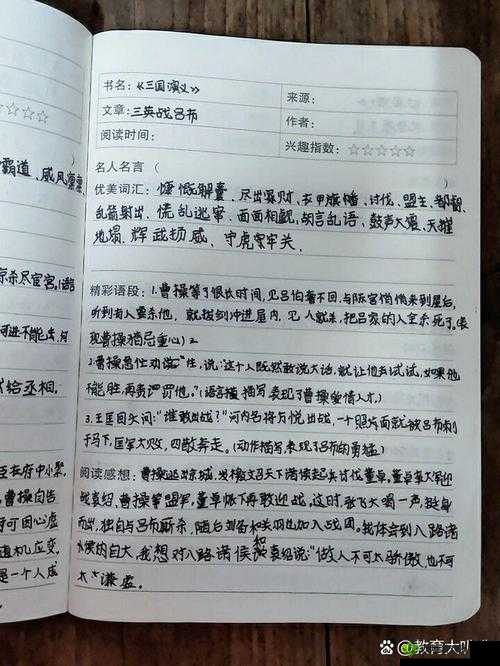 霸道、威风凛凛
京杀尽宦官,
何进不能
给丞相.
在府中小聚
曹操自告
可因心虚
随机应变.
是一个人成
书名:《三国演义》
来源:
文章: 三英战吕布
作者:
阅读时间:
兴趣指数: ☆☆☆☆☆
名人名言(
)
优美词汇: 慷慨解囊、尽出家财、衣甲旗幡、讨伐、盟主、都督、
乱箭射出、慌乱逃窜、面面相觑、胡言乱语、鼓声大震、天摧
地塌、辉武扬威、守虎牢关.
精彩语段: 1.曹操等了很长时间,见吕伯奢不回,与陈宫悄悄来到屋后,
听到有人要杀他,就拔剑冲进屋内,见人就杀,把吕家的人全杀死了.(表
现曹操猜忌重心) 2
2.曹操急忙劝住,说:这个人既然敢说大话,就让他去试试,如果他
不能胜,再责罚他。"(语言描写表现了曹操爱惜人才.)
3.王匡回头问:"谁敢出战?"河内名将方悦出战,一个照面就被吕布刺
于马下,匡军大败,四散奔走。(动作描写,表现了吕布的勇猛)
阅读感想: 曹操逃出京城,发檄文召天下诸侯起兵讨伐董卓。董卓率大军迎
战袁绍、曹操等盟军,董卓派吕布迎战,这时,张飞大喝一声,挺身
而出,独自与吕布厮杀,随后刘备和关羽也加入战团。我体会到八路诸
侯的自大,我想对八路诸侯和袁绍说:"做人不可太骄傲,也不可
太谦虚。
教育大